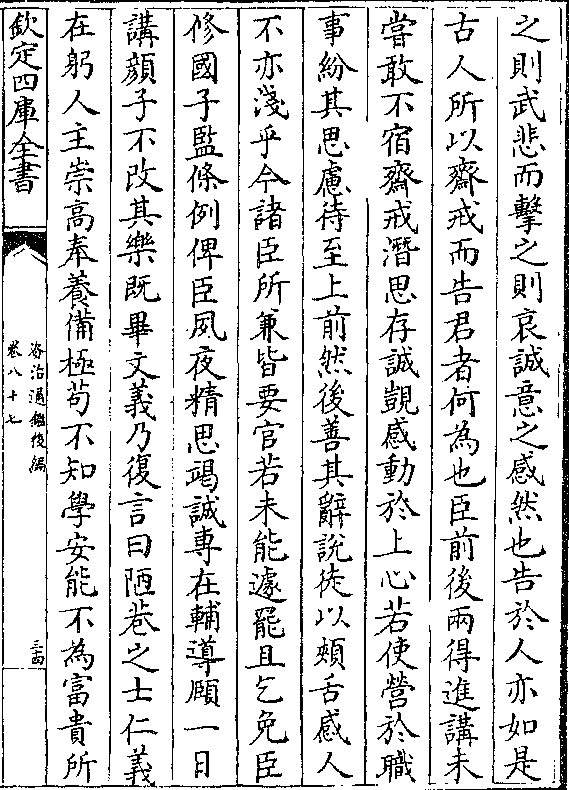 之則武悲而擊之則哀誠意之感然也告於人亦如是
古人所以齋戒而告君者何為也臣前後兩得進講未
嘗敢不宿齋戒潛思存誠覬感動於上心若使營於職
事紛其思慮待至上前然後善其辭說徒以頰舌感人
不亦淺乎今諸臣所兼皆要官若未能遽罷且乞免臣
修國子監條例俾臣夙夜精思竭誠專在輔導願一日
講顏子不改其樂既畢文義乃復言曰陋巷之士仁義
在躬人主崇高奉養備極茍不知學安能不為富貴所
欽定四庫全書
資治通鑑後編
卷八十七
三十四